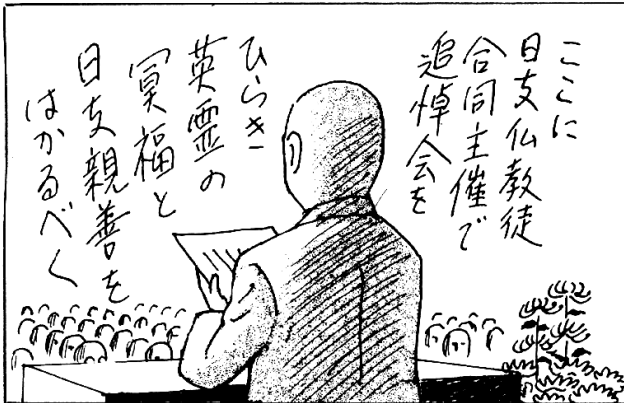 ここに
日支仏教徒
合同主催で
追悼会を
ひらき
英霊の
冥福と
日支親善を
はかるべく